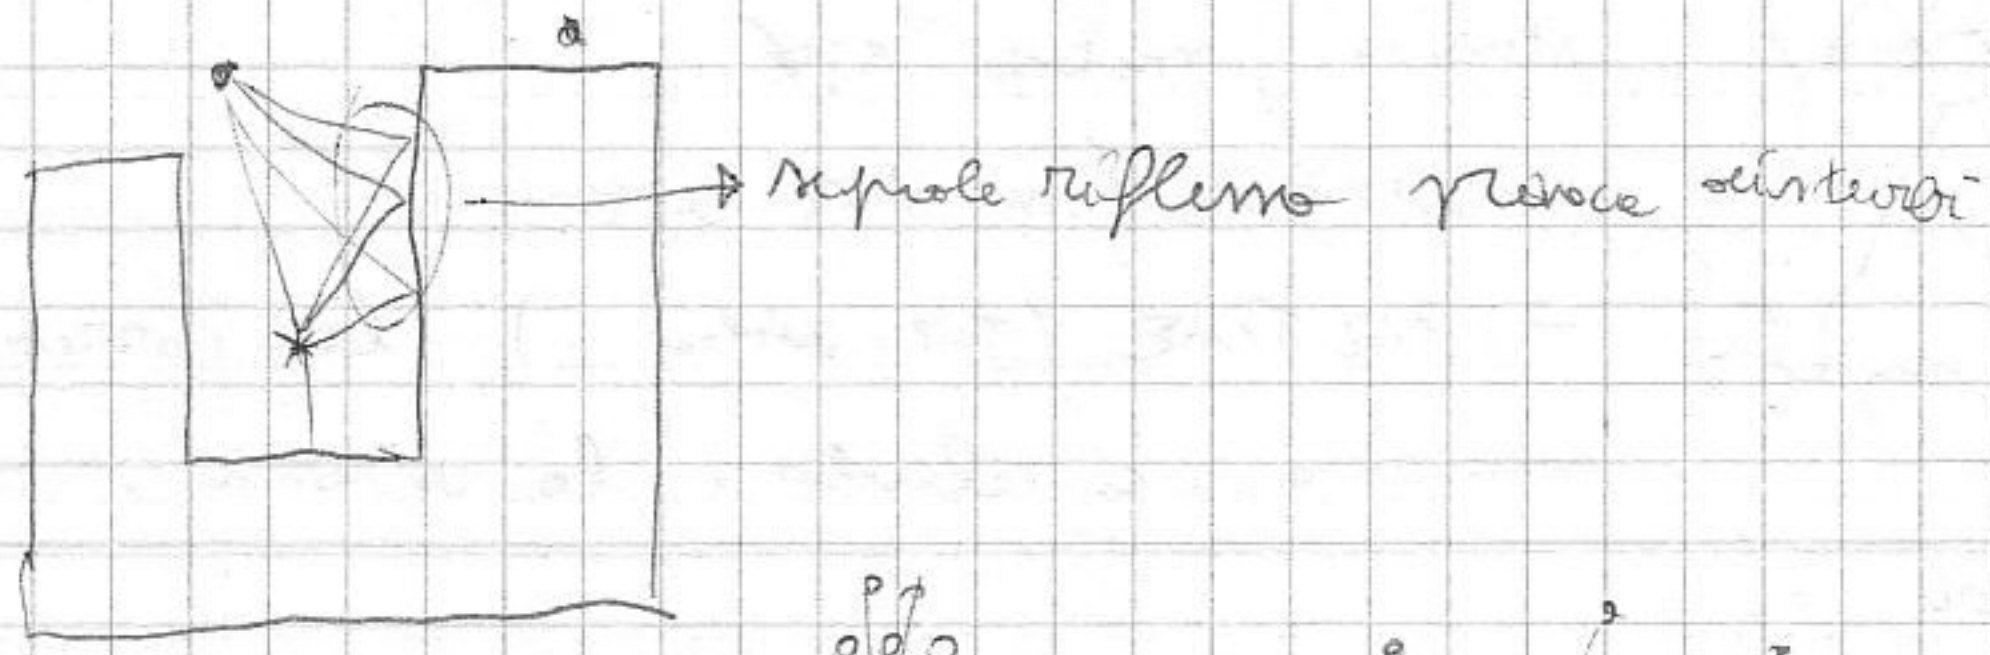 segnale riflesso provoca disturbi